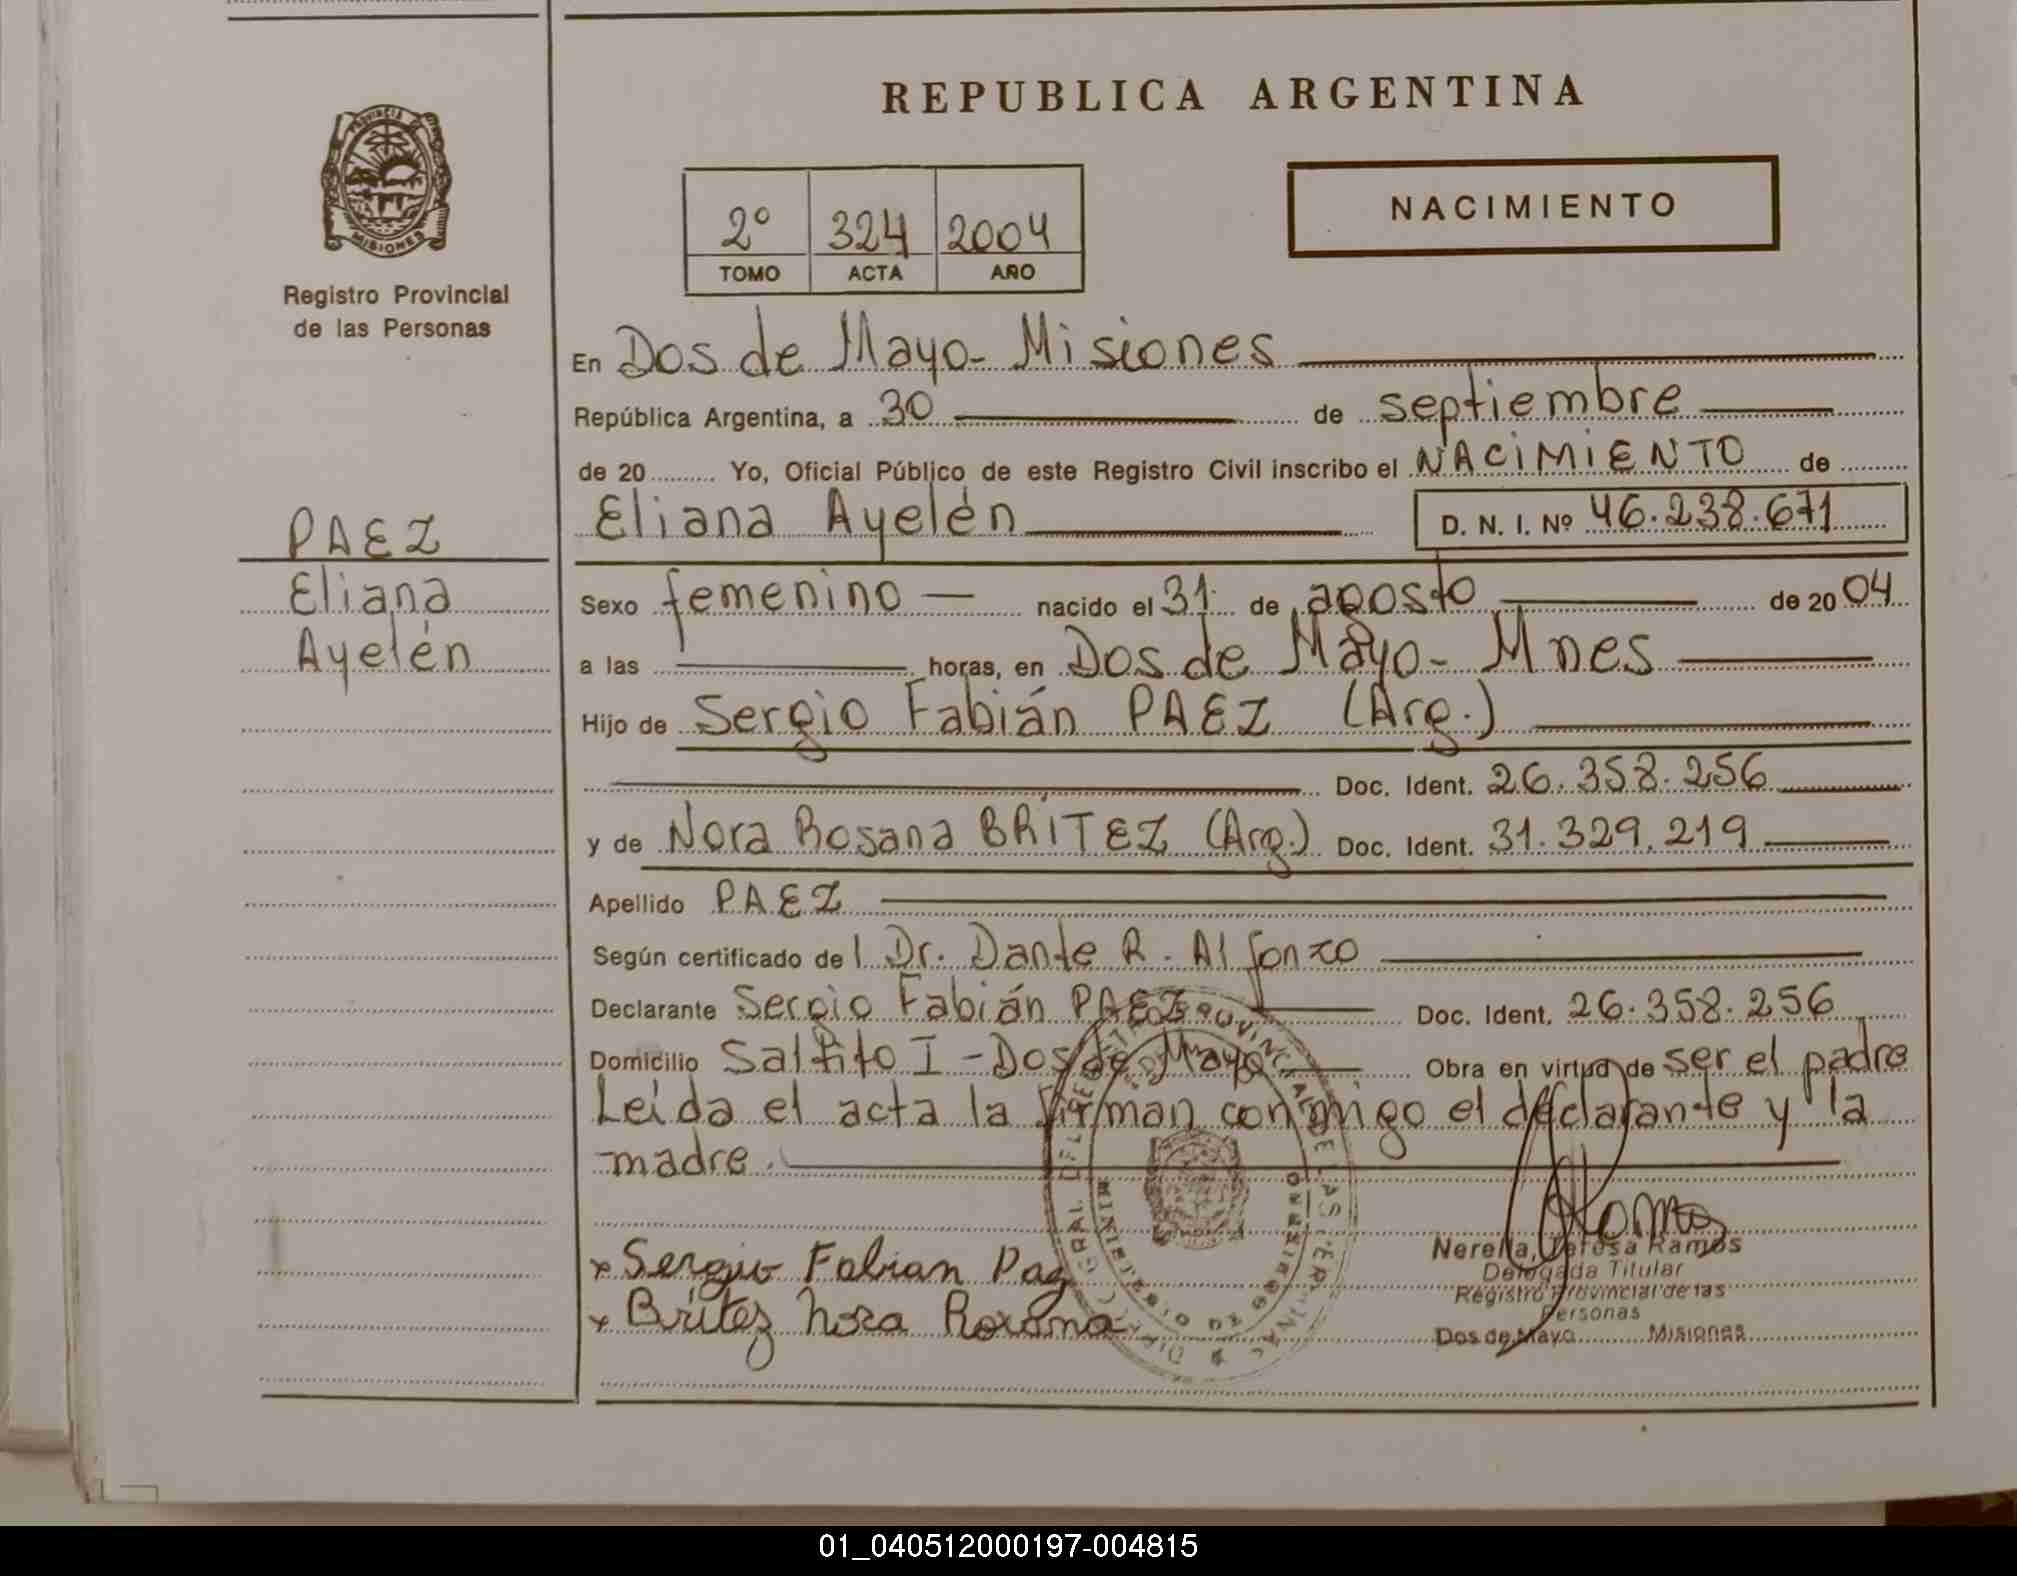 REPUBLICA ARGENTINA
PROVINCIA DE
MISIONES
Registro Provincial
de las Personas
2º 324 2004
TOMO ACTA AÑO
NACIMIENTO
En Dos de Mayo - Misiones
República Argentina, a 30 de septiembre
de 20 Yo, Oficial Público de este Registro Civil inscribo el NACIMIENTO de
Eliana Ayelén D. N. I. Nº 46.238.671
PAEZ
Eliana
Ayelén
Sexo femenino nacido el 31 de agosto de 2004
a las horas, en Dos de Mayo - Mnes
Hijo de Sergio Fabián PAEZ (Arg.)
Doc. Ident. 26.358.256
y de Nora Rosana BRITEZ (Arg.) Doc. Ident. 31.329.219
Apellido PAEZ
Según certificado del Dr. Dante R. Alfonzo
Declarante Sergio Fabián PAEZ Doc. Ident. 26.358.256
Domicilio Saltito I - Dos de Mayo Obra en virtud de ser el padre
Leída el acta la firman conmigo el declarante y la
madre.
x Sergio Fabian Paez
x Britez Nora Rosana
Nerella, Teresa Ramos
Delegada Titular
Registro Provincial de las
Personas
Dos de Mayo Misiones
01_040512000197-004815